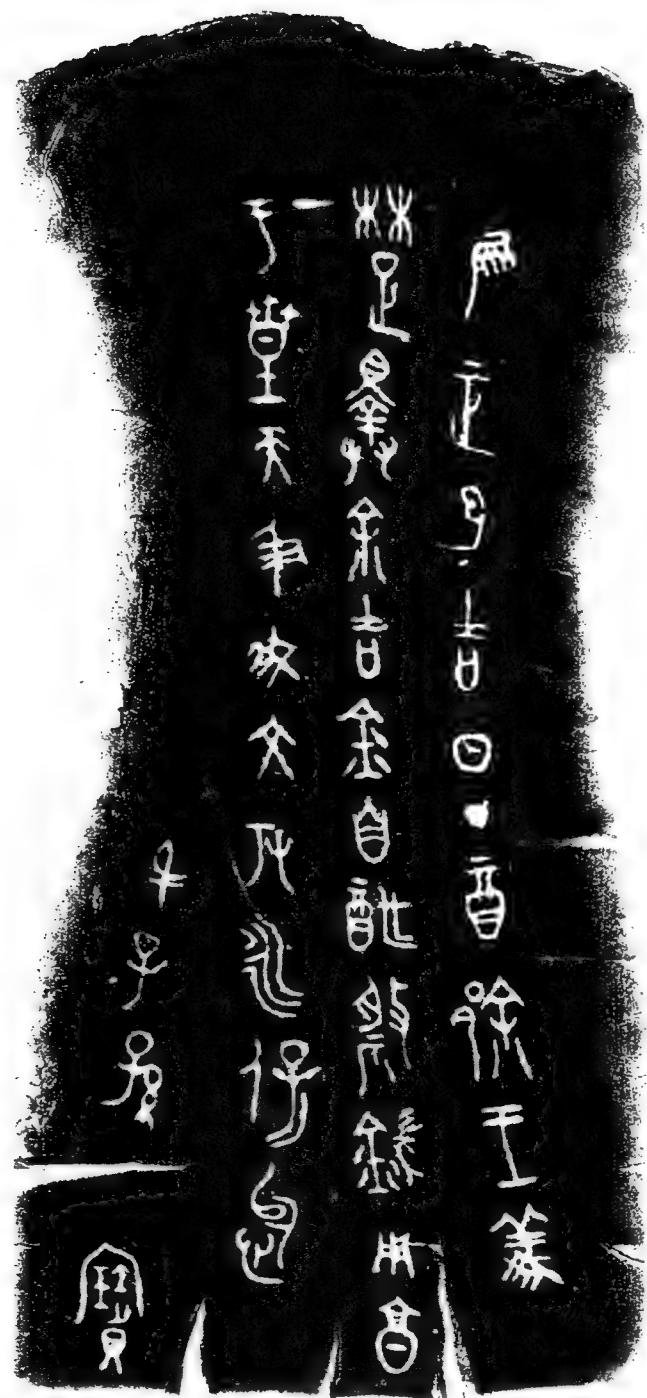 隹正月吉日丁酉郐王義
楚擇余吉金自酢祭鍴用享
于皇天及我文考永保㠯
身子孫寶